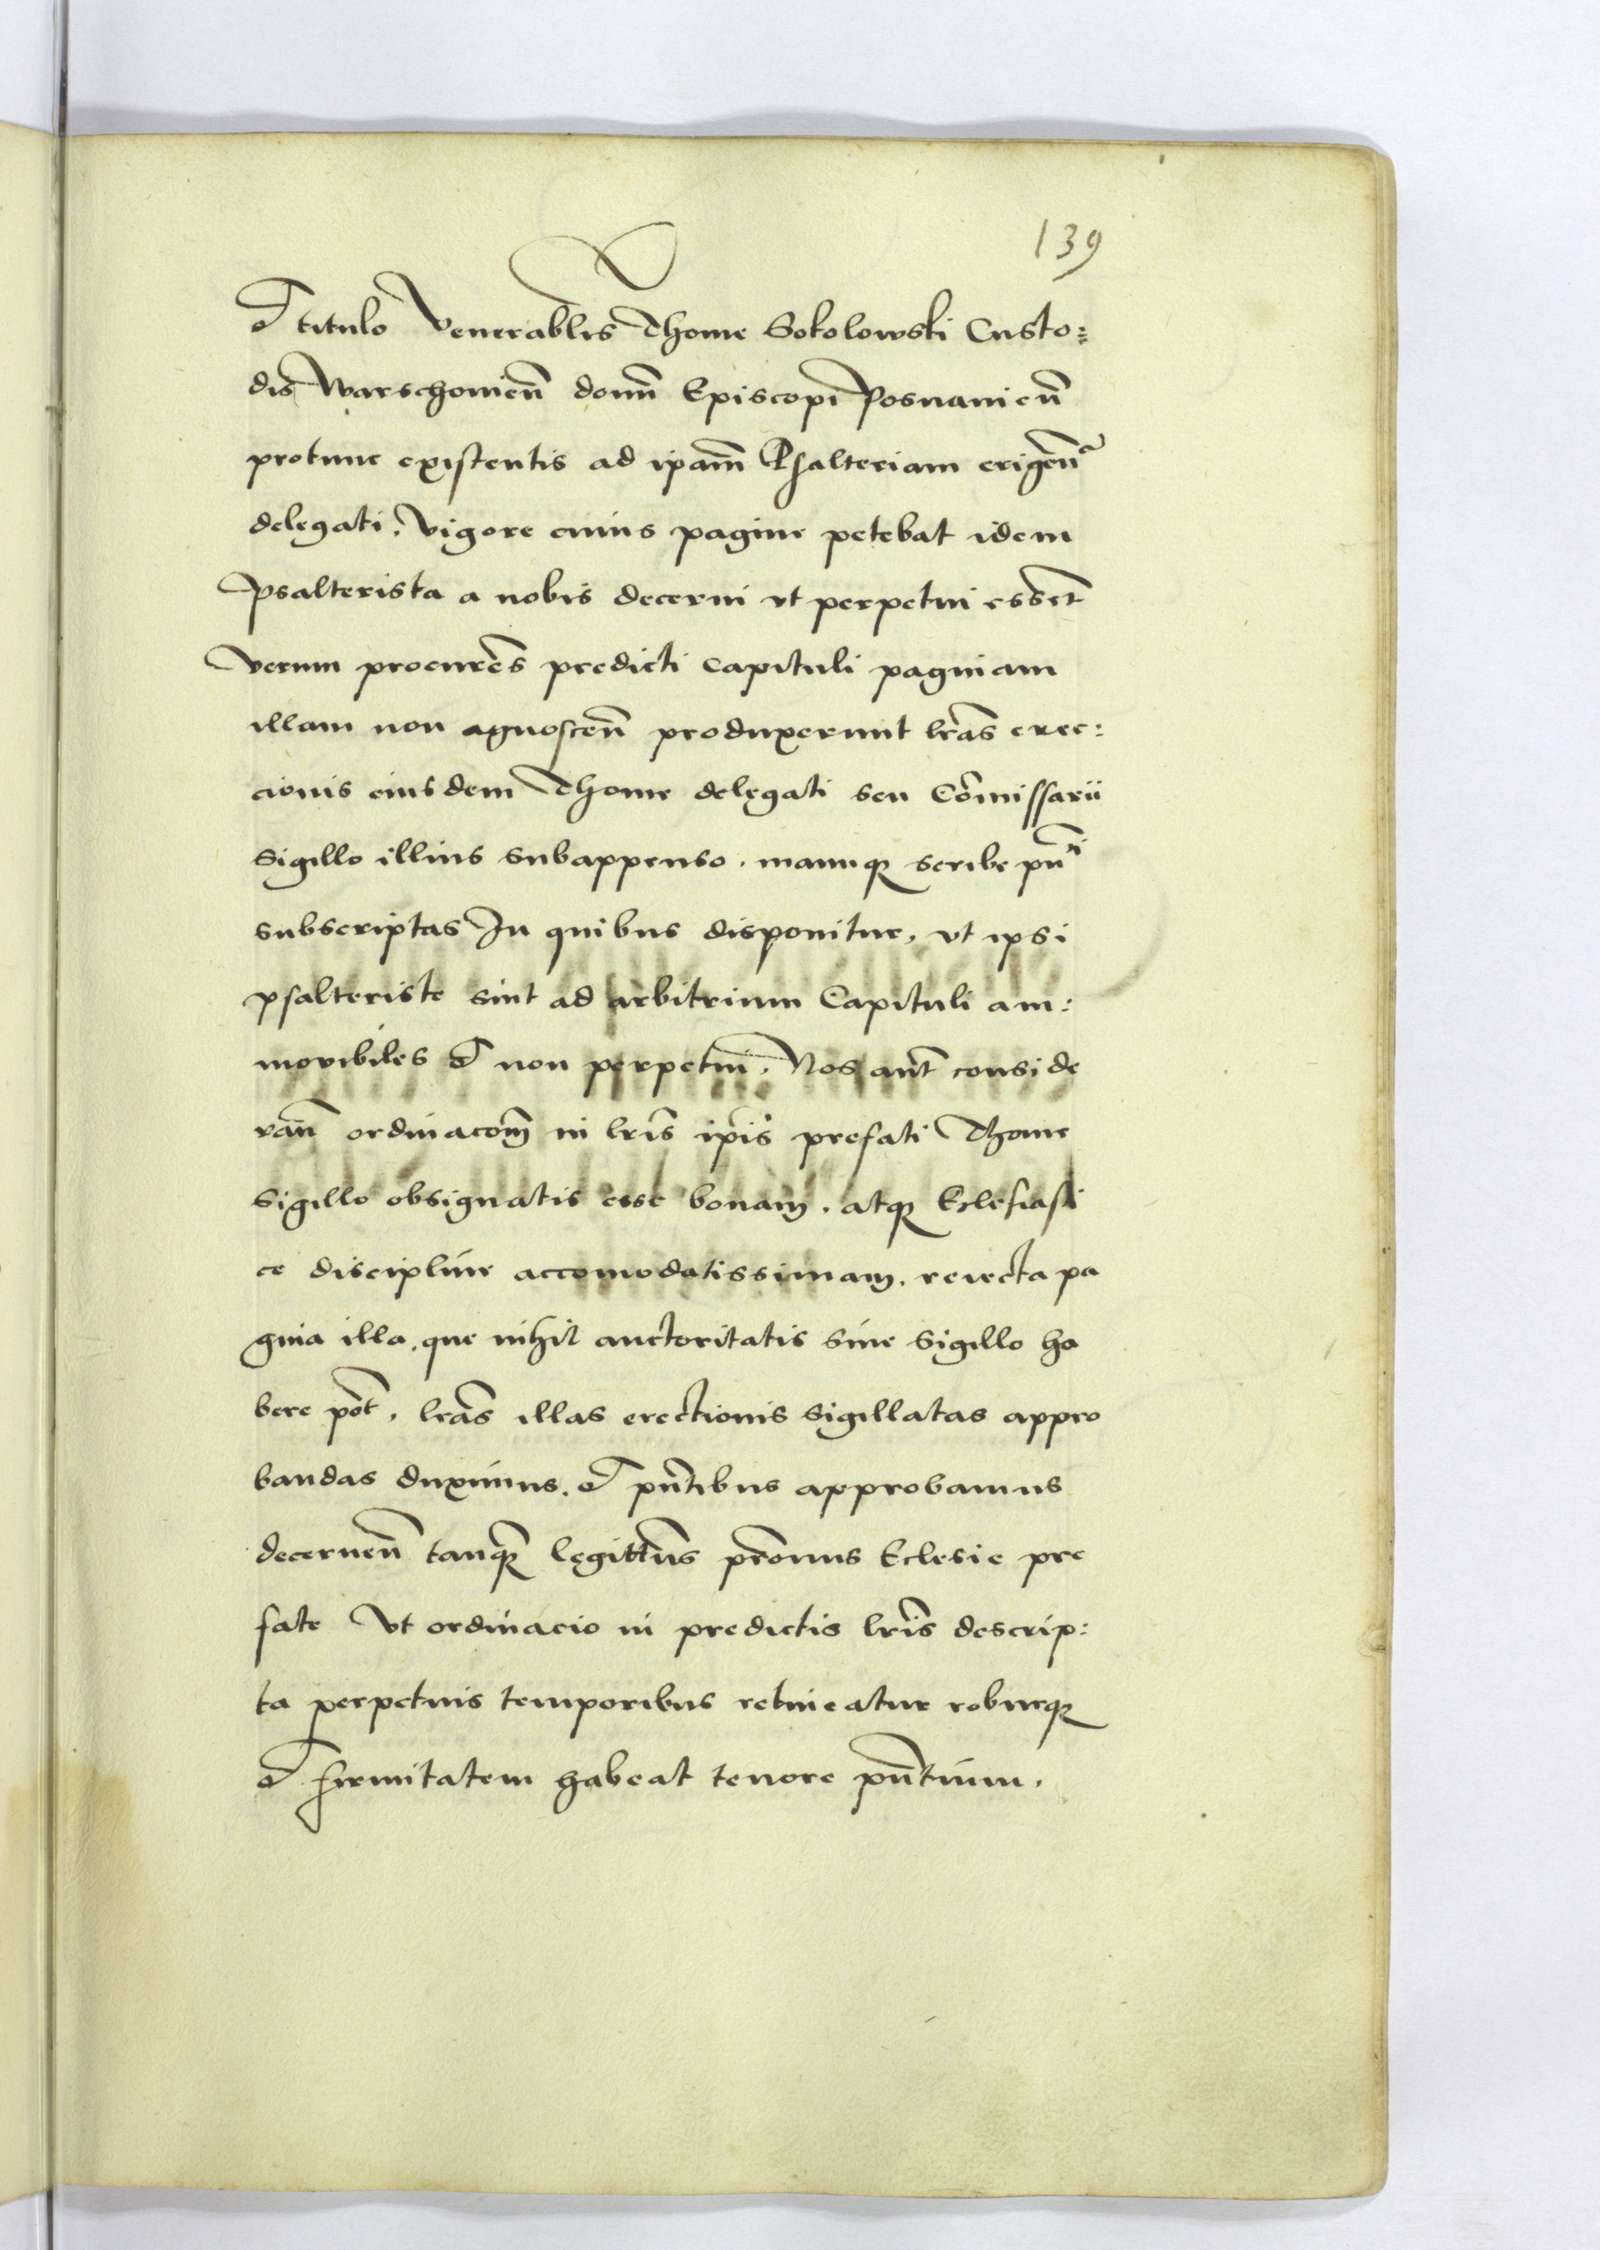 139
et titulo Venerablis Thome Sokolowski Custo=
dis Warschouieñ domñ Episcopi Posnanieñ
protunc existentis ad ipam̃ Psalteriam erigeñ
delegati. Vigore cuius pagine petebat idem
Psalterista a nobis decerni vt perpetui esset
Verum procures̃ predicti Capituli paginam
illam non agnosceñ produxerunt lras̃ erec:
cionis eiusdem Thome delegati seu Com̃issarii
Sigillo illius subappenso. manuq scribe pñti
subscriptas In quibus disponitur, vt ipsi
psalteriste sint ad arbitrium Capituli am:
movibiles et non perpetui. Nos aut̃ conside
rañ ordinacom̃ in lris̃ ip̃is prefati Thome
Sigillo obsignatis esse bonam. atq Eclesiasti
ce discipline accomodatissimam. reiecta pa
gina illa, que nihil auctoritatis sine Sigillo ha
bere pot̃. lras̃ illas erectionis Sigillatas appro
bandas duximus. et pñtibus approbamus
decerneñ tanq̃ legittũs pr̃onus Eclesie pre
fate Vt ordinacio in predictis lris̃ descrip:
ta perpetuis temporibus retineatur roburq
et firmitatem habeat tenore pñtium.